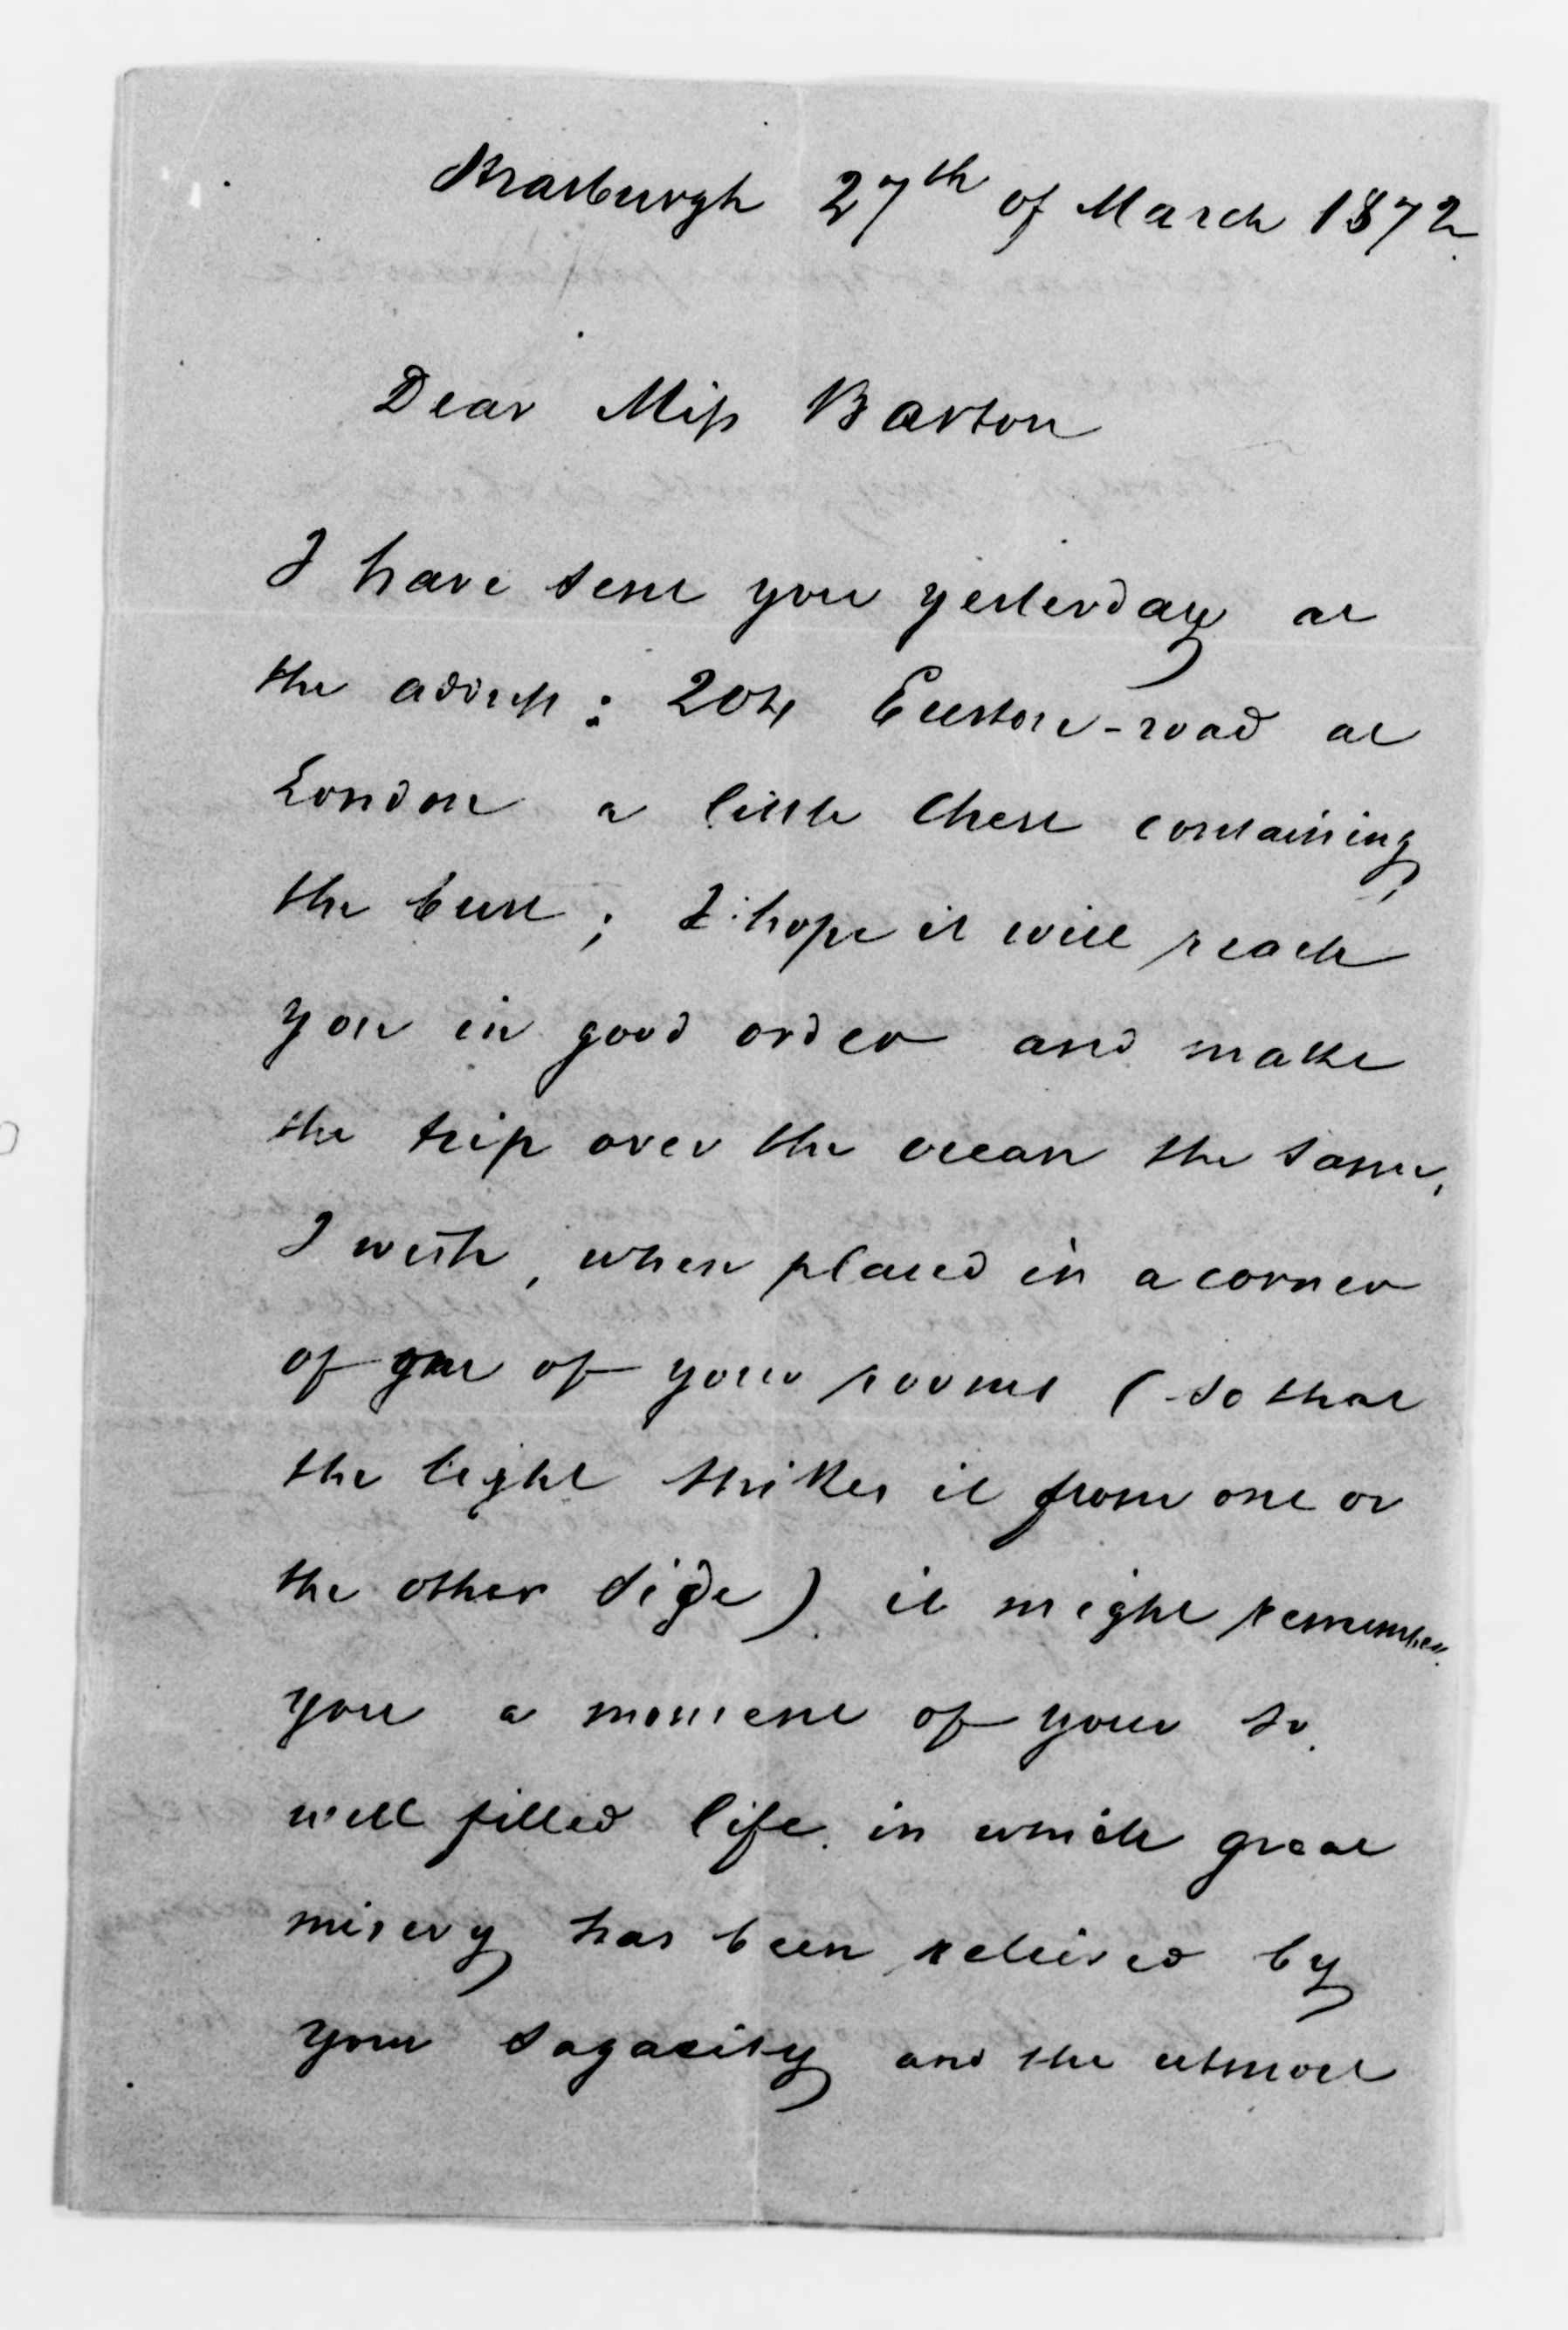 Strasburgh 27th of March 1872.
Dear Miss Barton
I have sent you yesterday at
the adress : 204 Euston-road at
London a little chest containing
the bust ; I hope it will reach
you in good order and make
the trip over the ocean the same.
I wish, when placed in a corner
of one of your rooms ( so that
the light strikes it from one or
the other side ) it might remember
you a moment of your so
well filled life in which great
misery has been relieved by
your sagacity and the utmost